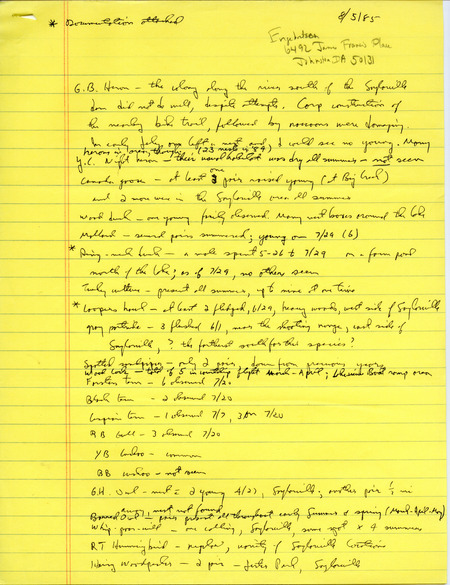 * Documentation attached
8/5/85
Engebretsen
6492 Jas. Francis Place
Johnston IA 50131
G.B. Heron – the colony along the river south of the Saylorville
dam did not do well, despite attempts. Corp construction of
the nearby bike trail, followed by raccoons were damaging.
In early July
I could see no young. Many
Y.C. Night heron – their usual habitat was dry all summer – not seen
Canada goose – at least 3 pairs raised young (at Big Creek)
and 2 more was in the Saylorville area all summer
Wood duck – one young family observed. Many nest boxes around the lake
Mallard – several pairs summered; young on 7/29 (6)
* Ring-neck duck – a male spent 5-26 to 7/29 on a farm pond
north of the lake; as of 7/29, no others seen
Turkey vulture – present all summer, up to nine at one time
* Coopers hawk – at least 2 fledged, 6/29, heavy woods, west side of Saylorville
gray partridge – 3 flushed 6/1, near the shooting range, east side of
Saylorville, ? the farthest south for this species?
Spotted sandpiper – only 2 pairs, down from previous years
Forsters tern – 6 observed 7/20
Black tern – 2 observed 7/20
Caspian tern – 1 observed 7/7, 3 on 7/20
R B Gull – 3 observed 7/20
YB Cuckoo – common
BB cuckoo – not seen
G.H. Owl – nest c 2 young 4/27, Saylorville; another pair ½ mi
away – nest not found
Barred Owl – 2 pairs present all throughout early summer & spring (March-April-May)
Whip-poor-will – one calling, Saylorville, same spot x 4 summers
RT Hummingbird – regular, variety of Saylorville locations
Woodpecker – 2 pair – Jester Park, Saylorville